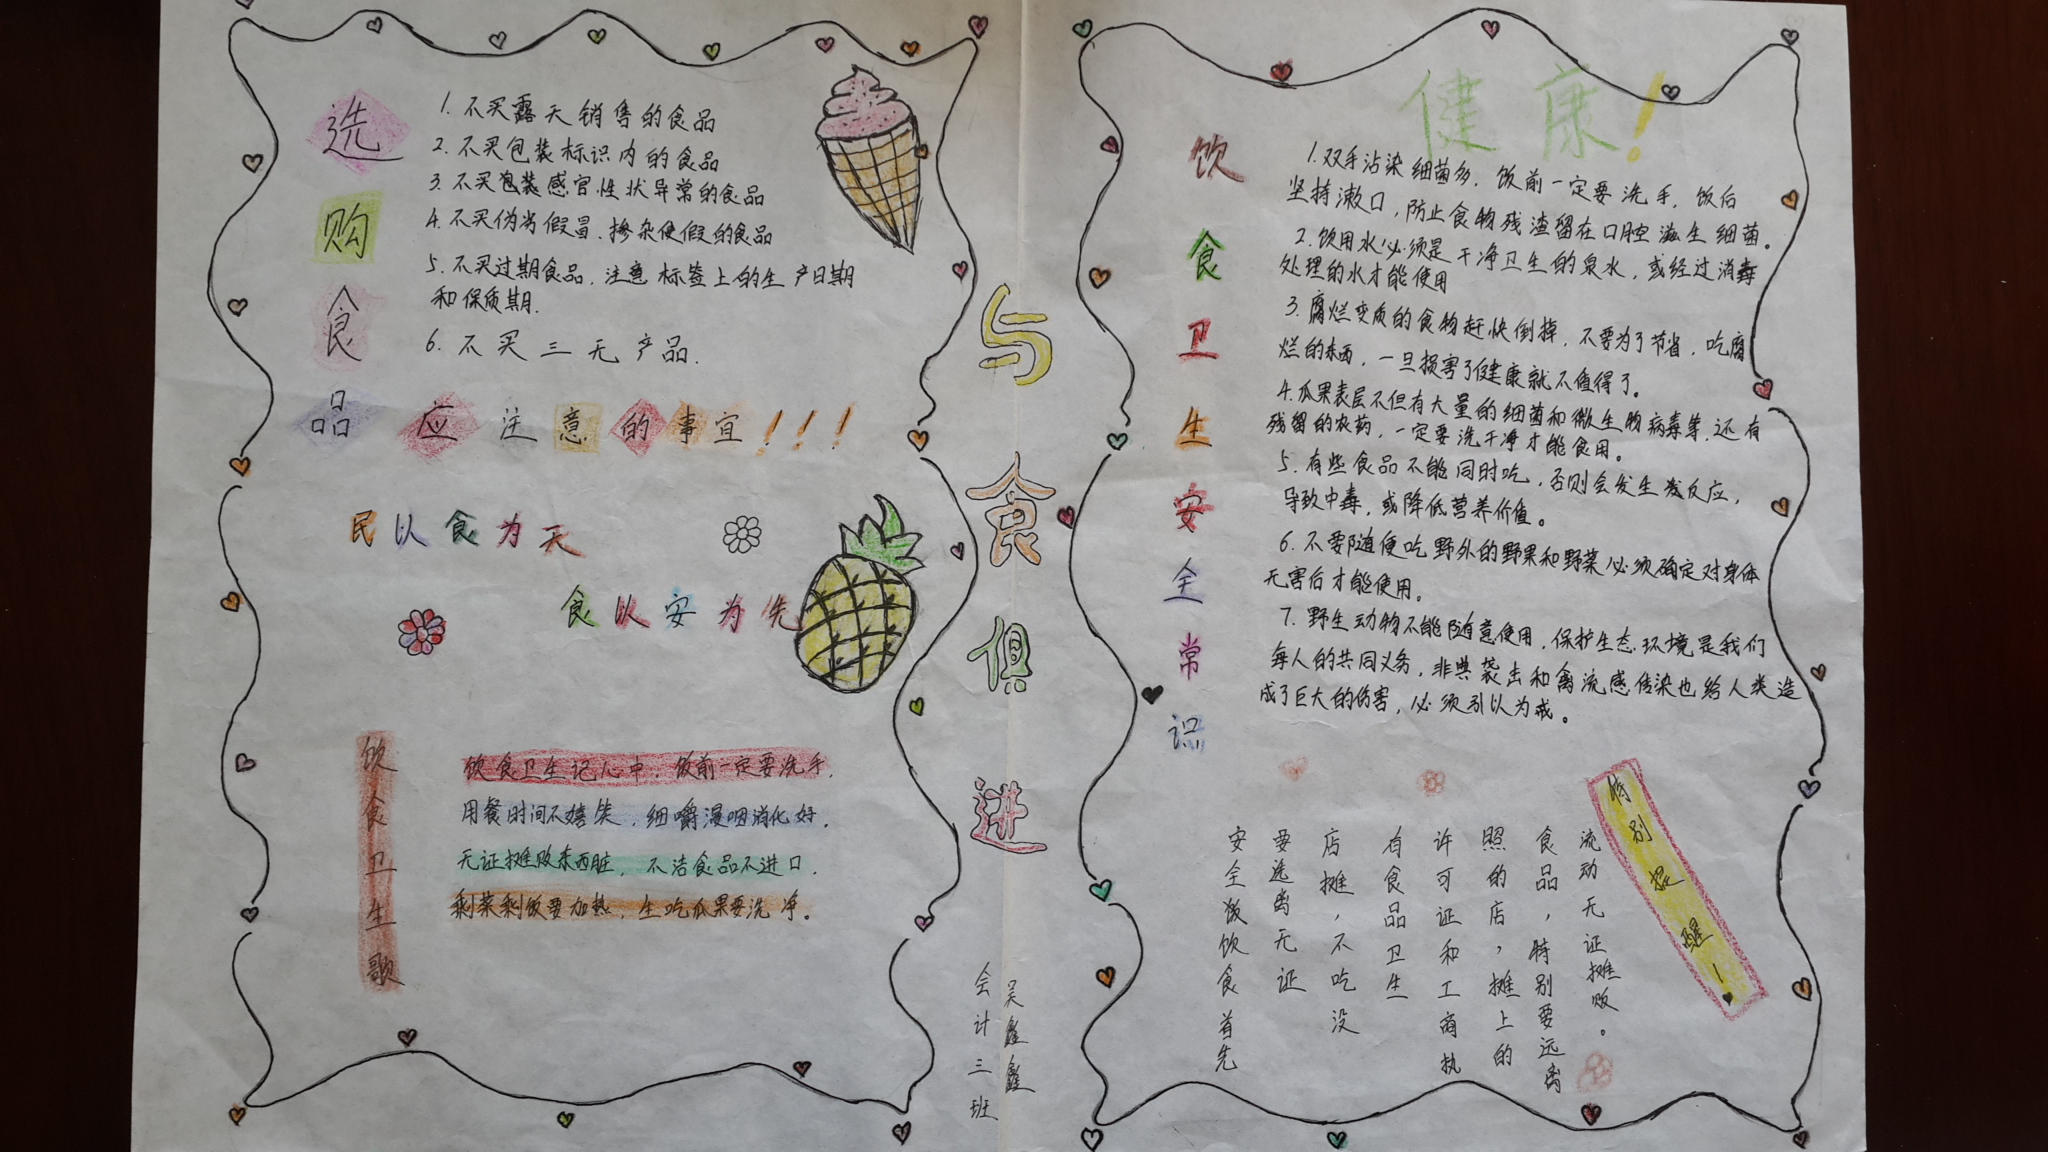 选购食品应注意的事宜!!!
1. 不买露天销售的食品
2. 不买包装标识内的食品
3. 不买包装感官性状异常的食品
4. 不买伪劣假冒、掺杂使假的食品
5. 不买过期食品,注意标签上的生产日期
和保质期.
6. 不买三无产品.
民以食为天
食以安为先
饮食卫生歌
饮食卫生记心中,饭前一定要洗手.
用餐时间不嬉笑,细嚼漫咽消化好.
无证摊败东西脏,不洁食品不进口.
剩菜剩饭要加热,生吃瓜果要洗净。
与食俱进
会计三班
吴鑫鑫
健康!
饮食卫生安全常识
1. 双手沾染细菌多,饭前一定要洗手,饭后
坚持漱口,防止食物残渣留在口腔滋生细菌。
2. 饮用水必须是干净卫生的泉水,或经过消毒
处理的水才能使用
3. 腐烂变质的食物赶快倒掉,不要为了节省,吃腐
烂的东西,一旦损害了健康就不值得了。
4. 瓜果表层不但有大量的细菌和微生物病毒等,还有
残留的农药,一定要洗干净才能食用。
5. 有些食品不能同时吃,否则会发生发反应,
导致中毒,或降低营养价值。
6. 不要随便吃野外的野果和野菜必须确定对身体
无害后才能使用。
7. 野生动物不能随意使用,保护生态环境是我们
每人的共同义务,非典袭击和禽流感传染也给人类造
成了巨大的伤害,必须引以为戒。
特别提醒!
安全饭饮食首先
要选离无证
店摊,不吃没
有食品卫生
许可证和工商执
照的店,摊上的
食品,特别要远离
流动无证摊贩。